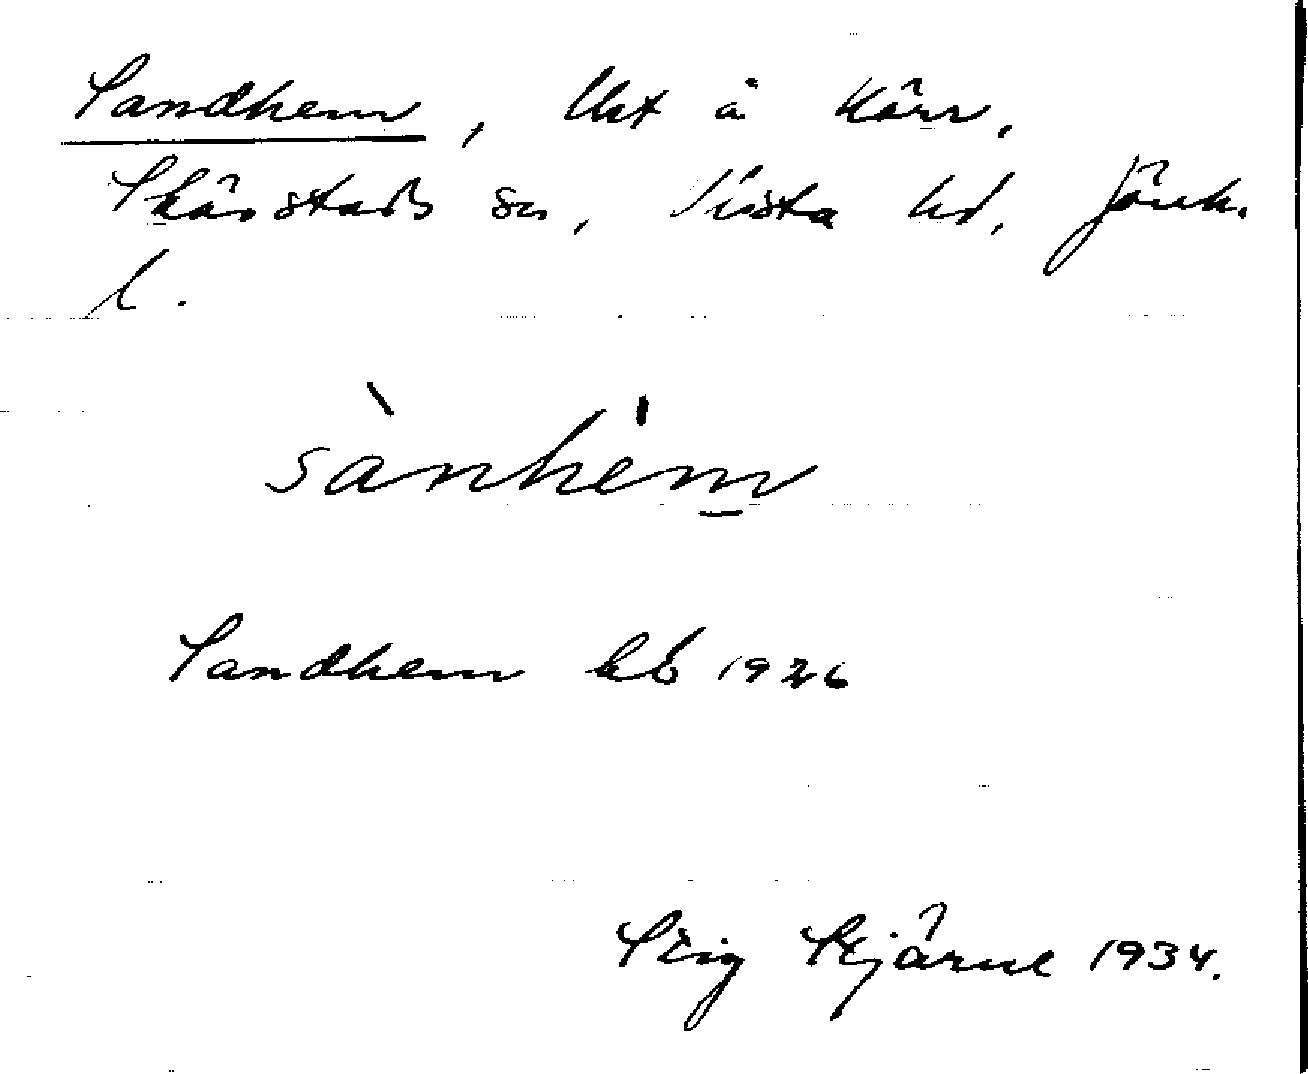 Sandhem, Ust å Kärr,
Skärstads sn, Vista hd, Jönk.
l.
sànhèm
Sandhem hb 1926
Stig Stjärne 1934.